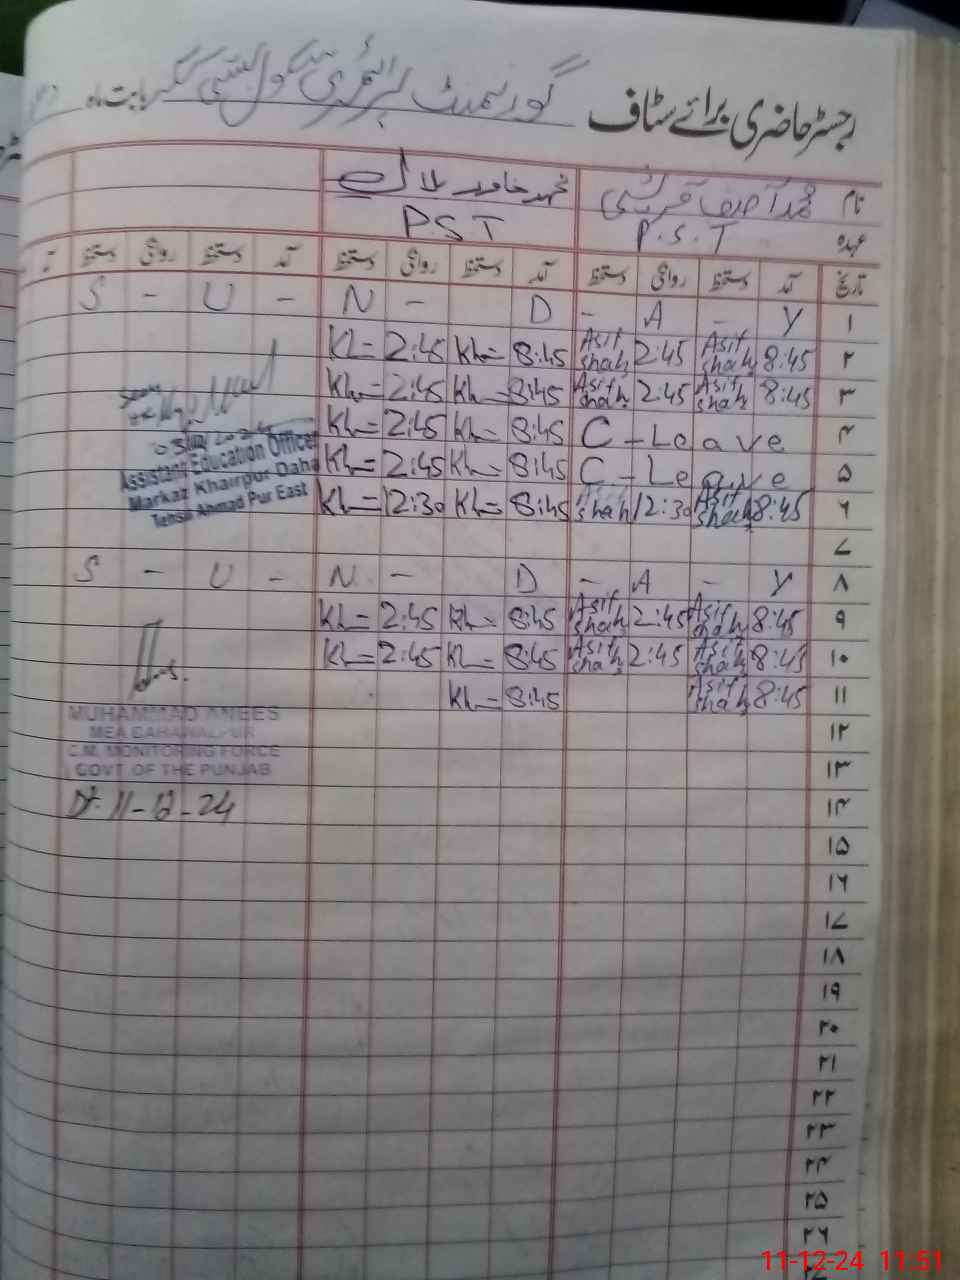 رجسٹر حاضری برائے سٹاف گورنمنٹ پرائمری سکول بستی بابت ماہ
نام محمد آصف قریشی محمد خاور بلال
عہدہ P.S.T PST
تاریخ آمد دستخط روانگی دستخط آمد دستخط روانگی دستخط آمد دستخط روانگی دستخط
۱ S - U - N - D - A - Y
۲ Kh 2:45 Kh 8:45 Asif shah 2:45 Asif shah 8:45
۳ Kh 2:45 Kh 8:45 Asif shah 2:45 Asif shah 8:45
۴ Kh 2:45 Kh 8:45 C - Leave
۵ Kh 2:45 Kh 8:45 C - Leave
۶ Kh 12:30 Kh 8:45 Asif shah 12:30 Asif shah 8:45
Assistant Education Officer
Markaz Khairpur Daha
Tehsil Ahmad Pur East
۷
۸ S - U - N - D - A - Y
۹ Kh 2:45 Kh 8:45 Asif shah 2:45 Asif shah 8:45
۱۰ Kh 2:45 Kh 8:45 Asif shah 2:45 Asif shah 8:45
۱۱ Kh 8:45 Asif shah 8:45
MUHAMMAD ANEES
MEA BAHAWALPUR
C.M. MONITORING FORCE
GOVT. OF THE PUNJAB
Dt. 11-12-24
۱۲
۱۳
۱۴
۱۵
۱۶
۱۷
۱۸
۱۹
۲۰
۲۱
۲۲
۲۳
۲۴
۲۵
۲۶
11-12-24 11:51